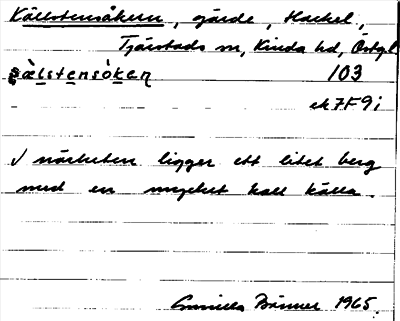 Källstensåkern, gärde, Hackel,
Tjärstads sn, Kinda hd, Östgl
103
ek 7F9i
I närheten ligger ett litet berg
med en mycket kall källa.
Gunilla Bänner 1965.